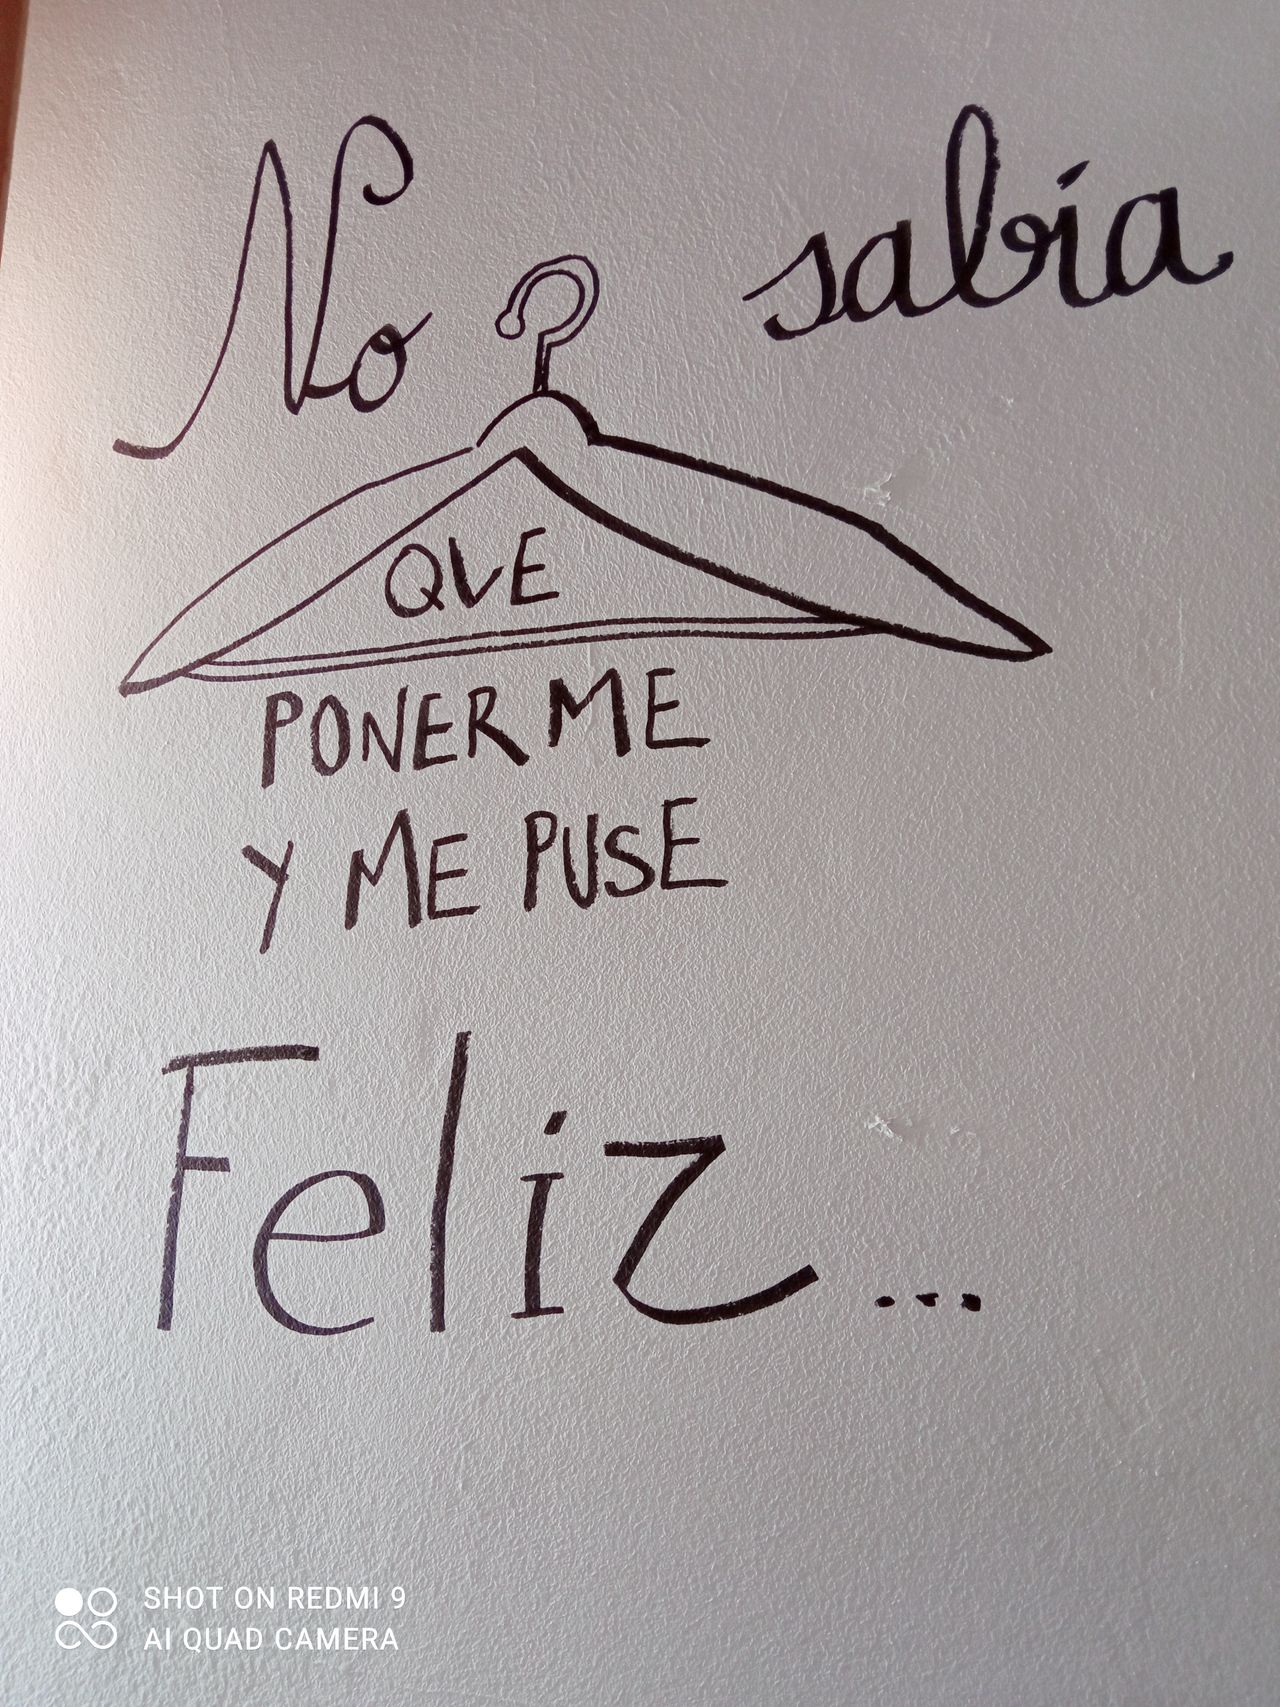 No sabía
QUE
PONERME
Y ME PUSE
Feliz...
SHOT ON REDMI 9
AI QUAD CAMERA